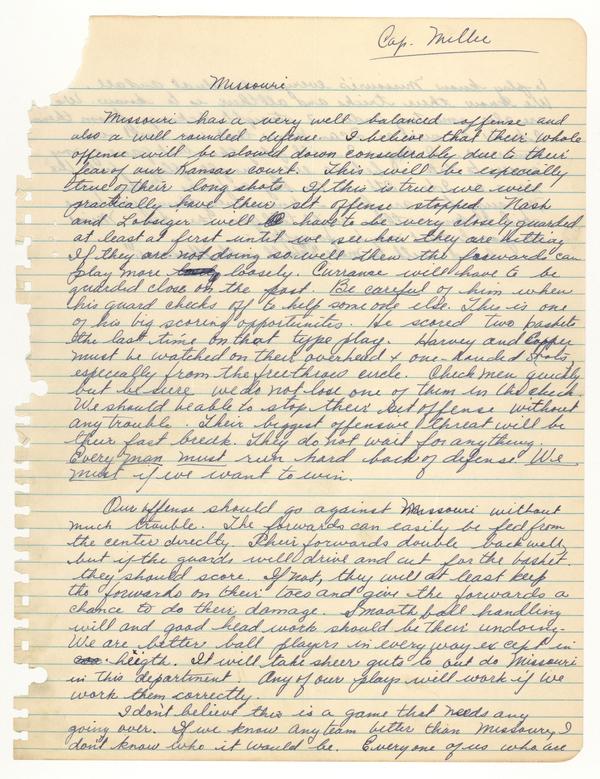 Cap. Miller
Missouri
Missouri has a very well balanced offense and
also a well rounded defence. I believe that their whole
offense will be slowed down considerably due to their
fear of our Kansas court. This will be especially
true of their long shots. If this is true we will
practically have their set offense stopped. Nash
and Lobsiger will have to be very closely guarded
at least at first until we see how they are hitting.
If they are not doing so well then the forwards can
play more loosely. Currance will have to be
guarded close on the post. Be careful of him when
his guard checks off to help someone else. This is one
of his big scoring opportunites. He scored two baskets
the last time on that type play. Harvey and Copper
must be watched on their overhead & one-handed shots
especially from the free throws circle. Check men quickly
but be sure we do not lose one of them in the check.
We should be able to stop their set offense without
any trouble. Their biggest offensive threat will be
their fast break. They do not wait for anything.
Every man must run hard back of defense. We
must if we want to win.
Our offense should go against Missouri without
much trouble. The forwards can easily be fed from
the center direclty. Their forwards double back well,
but if the guards will drive and cut for the basket
they should score. If not, they will at least keep
the forwards on their toes and give the forwards a
chance to do their damage. Smooth ball handling
will and good head work should be their undoing.
We are better ball players in every way except in
heigth. It will take sheer guts to out do Missouri
in this department. Any of our plays will work if we
work them correctly.
I don't believe this is a game that needs any
going over. If we know any team better than Missoury, I
don't know who it would be. Everyone of us who are